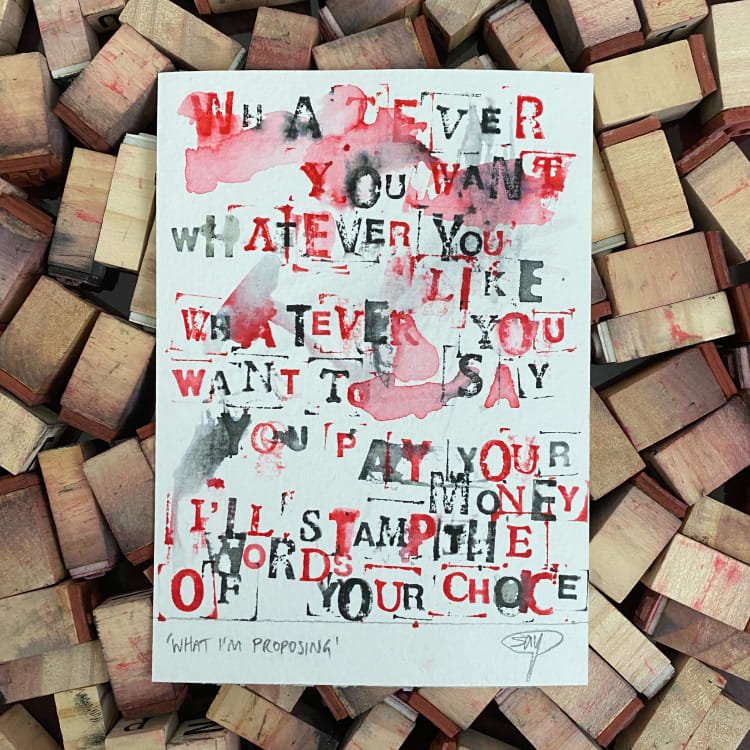 WHATEVER
YOU WANT
WHATEVER YOU
LIKE
WHATEVER YOU
WANT TO SAY
YOU PAY YOUR
MONEY
I'LL STAMP THE
WORDS
OF YOUR CHOICE
'WHAT I'M PROPOSING'